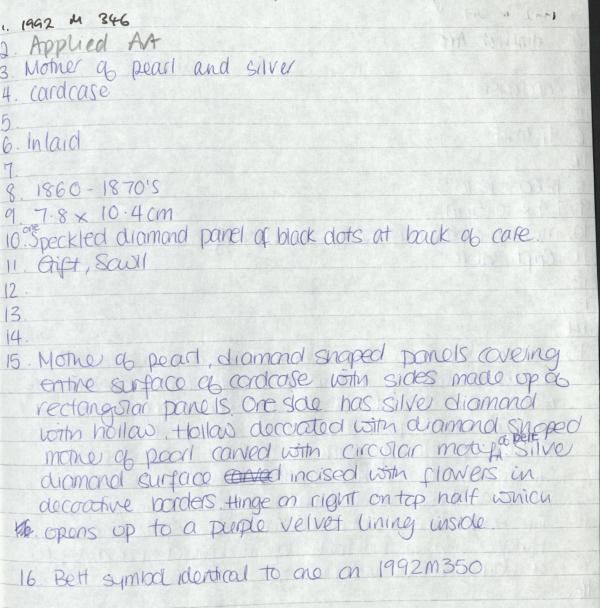 1. 1992 M 346
2. Applied Art
3. Mother of pearl and silver
4. cardcase
5.
6. Inlaid
7.
8. 1860 - 1870's
9. 7.8 x 10.4 cm
10. one Speckled diamond panel of black dots at back of case.
11. Gift,
12.
13.
14.
15. Mother of pearl, diamond shaped panels coveing
entire surface of cardcase with sides made up of
rectangular panels. One side has silver diamond
with hollow. Hollow decorated with diamond shaped
mothe of pearl carved with circular motif of belt. Silve
diamond surface carved incised with flowers in
decorative borders. Hinge on right on top half which
opens up to a purple velvet lining inside.
16. Belt symbol identical to one on 1992M350